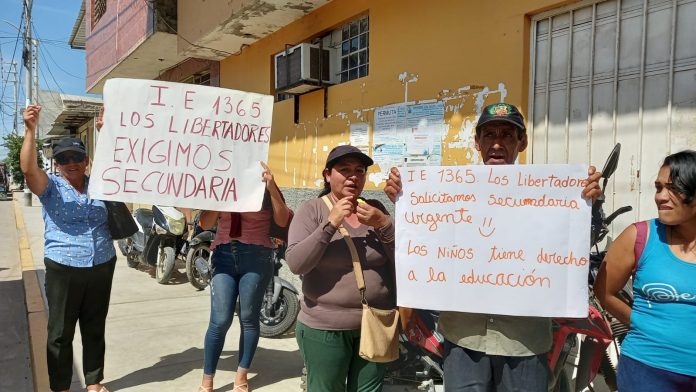 I.E 1365
LOS LIBERTADORES
EXIGIMOS
SECUNDARIA
PERMUTA
I E 1365 Los Libertadores
Solicitamos secundaria
urgente
Los niños tiene derecho
a la educación